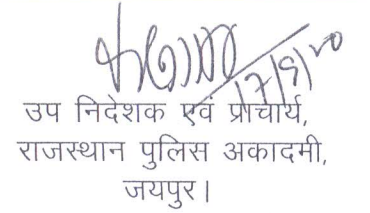 17/9/20
उप निदेशक एवं प्राचार्य,
राजस्थान पुलिस अकादमी,
जयपुर।